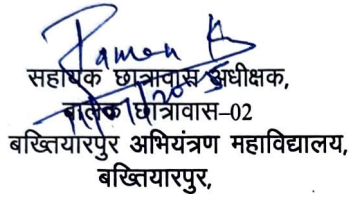 सहायक छात्रावास अधीक्षक,
बालक छात्रावास–02
बख्तियारपुर अभियंत्रण महाविद्यालय,
बख्तियारपुर,